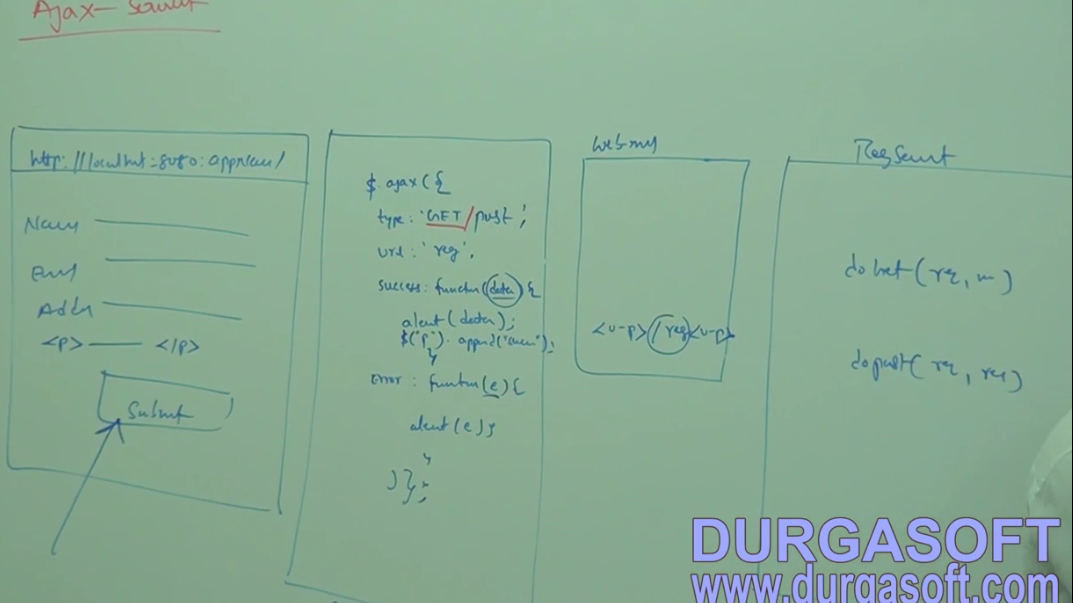 Ajax - Servlet
http://localhost:8080:appname/
Name
Email
Addr
<p> </p>
Submit
$.ajax({
type: 'GET/post';
url: 'reg',
success: function(data){
alert(data);
$("p").append("
}
error: function(e){
alert(e);
}
)};
web.xml
<u-p>/reg<u-p>
RegServlet
doGet(req, res)
dopost(req, res)
DURGASOFT
www.durgasoft.com